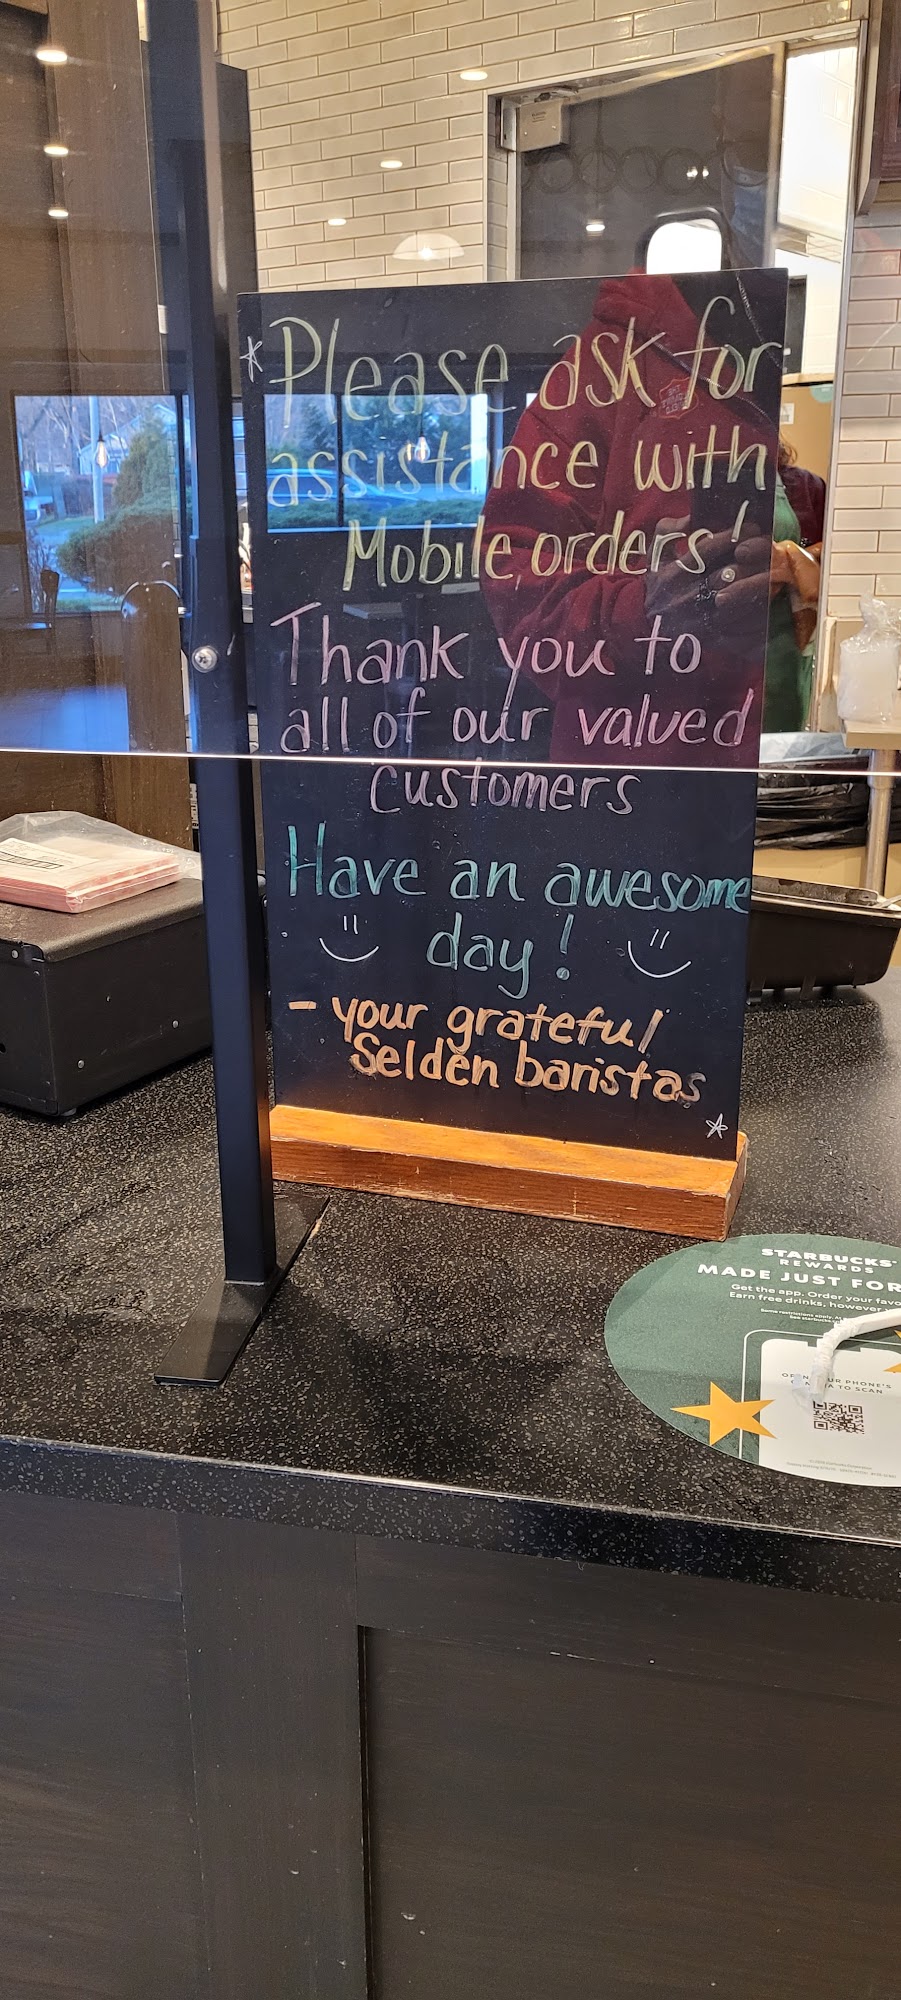 Please ask for
assistance with
Mobile orders!
Thank you to
all of our valued
customers
Have an awesome
day!
- your grateful
Selden baristas
STARBUCKS
REWARDS
MADE JUST FOR
Get the app. Order your favo
Earn free drinks, however
Some restrictions apply. At
PHONE'S
TO SCAN